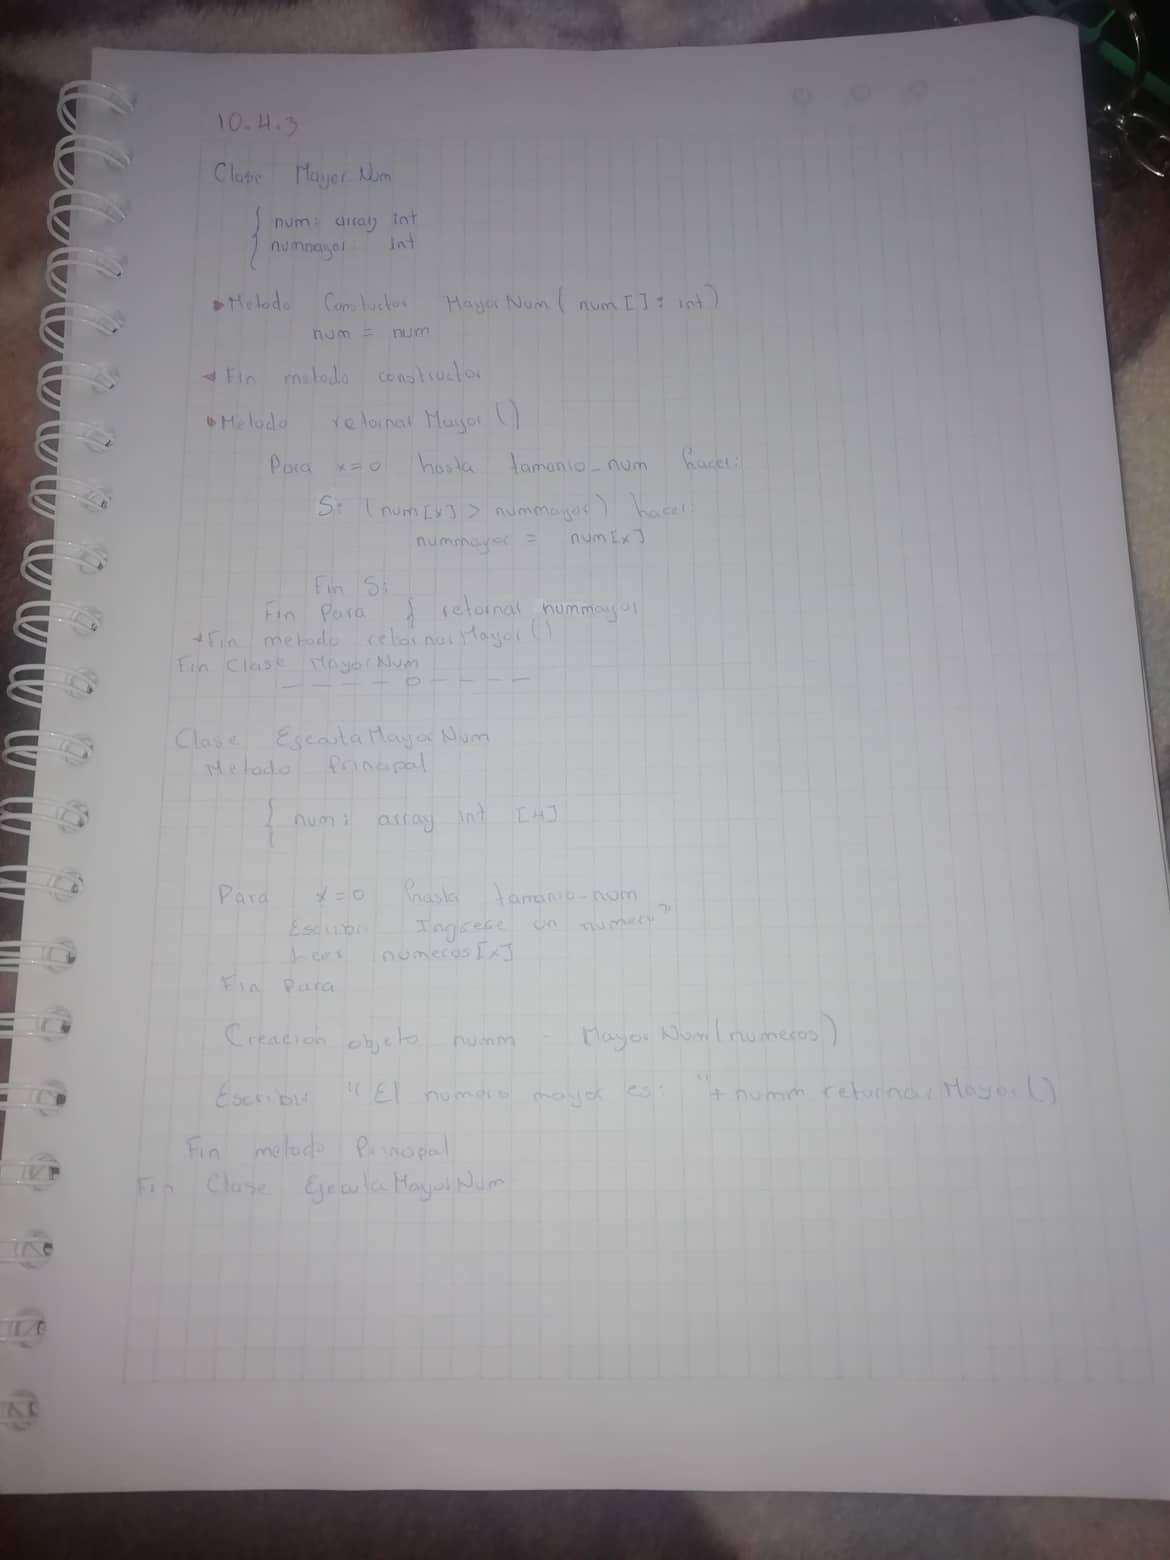 10.4.3
Clase MayorNum
num: array int
nummayor int
Metodo Constuctor MayorNum ( num [] : int )
num = num
Fin metodo constructor
Metodo retornarMayor ()
Para x=0 hasta tamanio_num hacer:
Si (num[x] > nummayor) hacer:
nummayor = num[x]
Fin Si
Fin Para } retornar nummayor
Fin metodo retornarMayor ()
Fin Clase MayorNum
- - - - o - - - -
Clase EjecutaMayorNum
Metodo Principal
{ num: array int [4]
Para x=0 hasta tamanio-num
Escribir Ingrese un numero"
Leer numeros[x]
Fin Para
Creación objeto numm - MayorNum(numeros)
Escribir "El numero mayor es: "+ numm retornarMayor()
Fin metodo Principal
Fin Clase EjecutaMayorNum